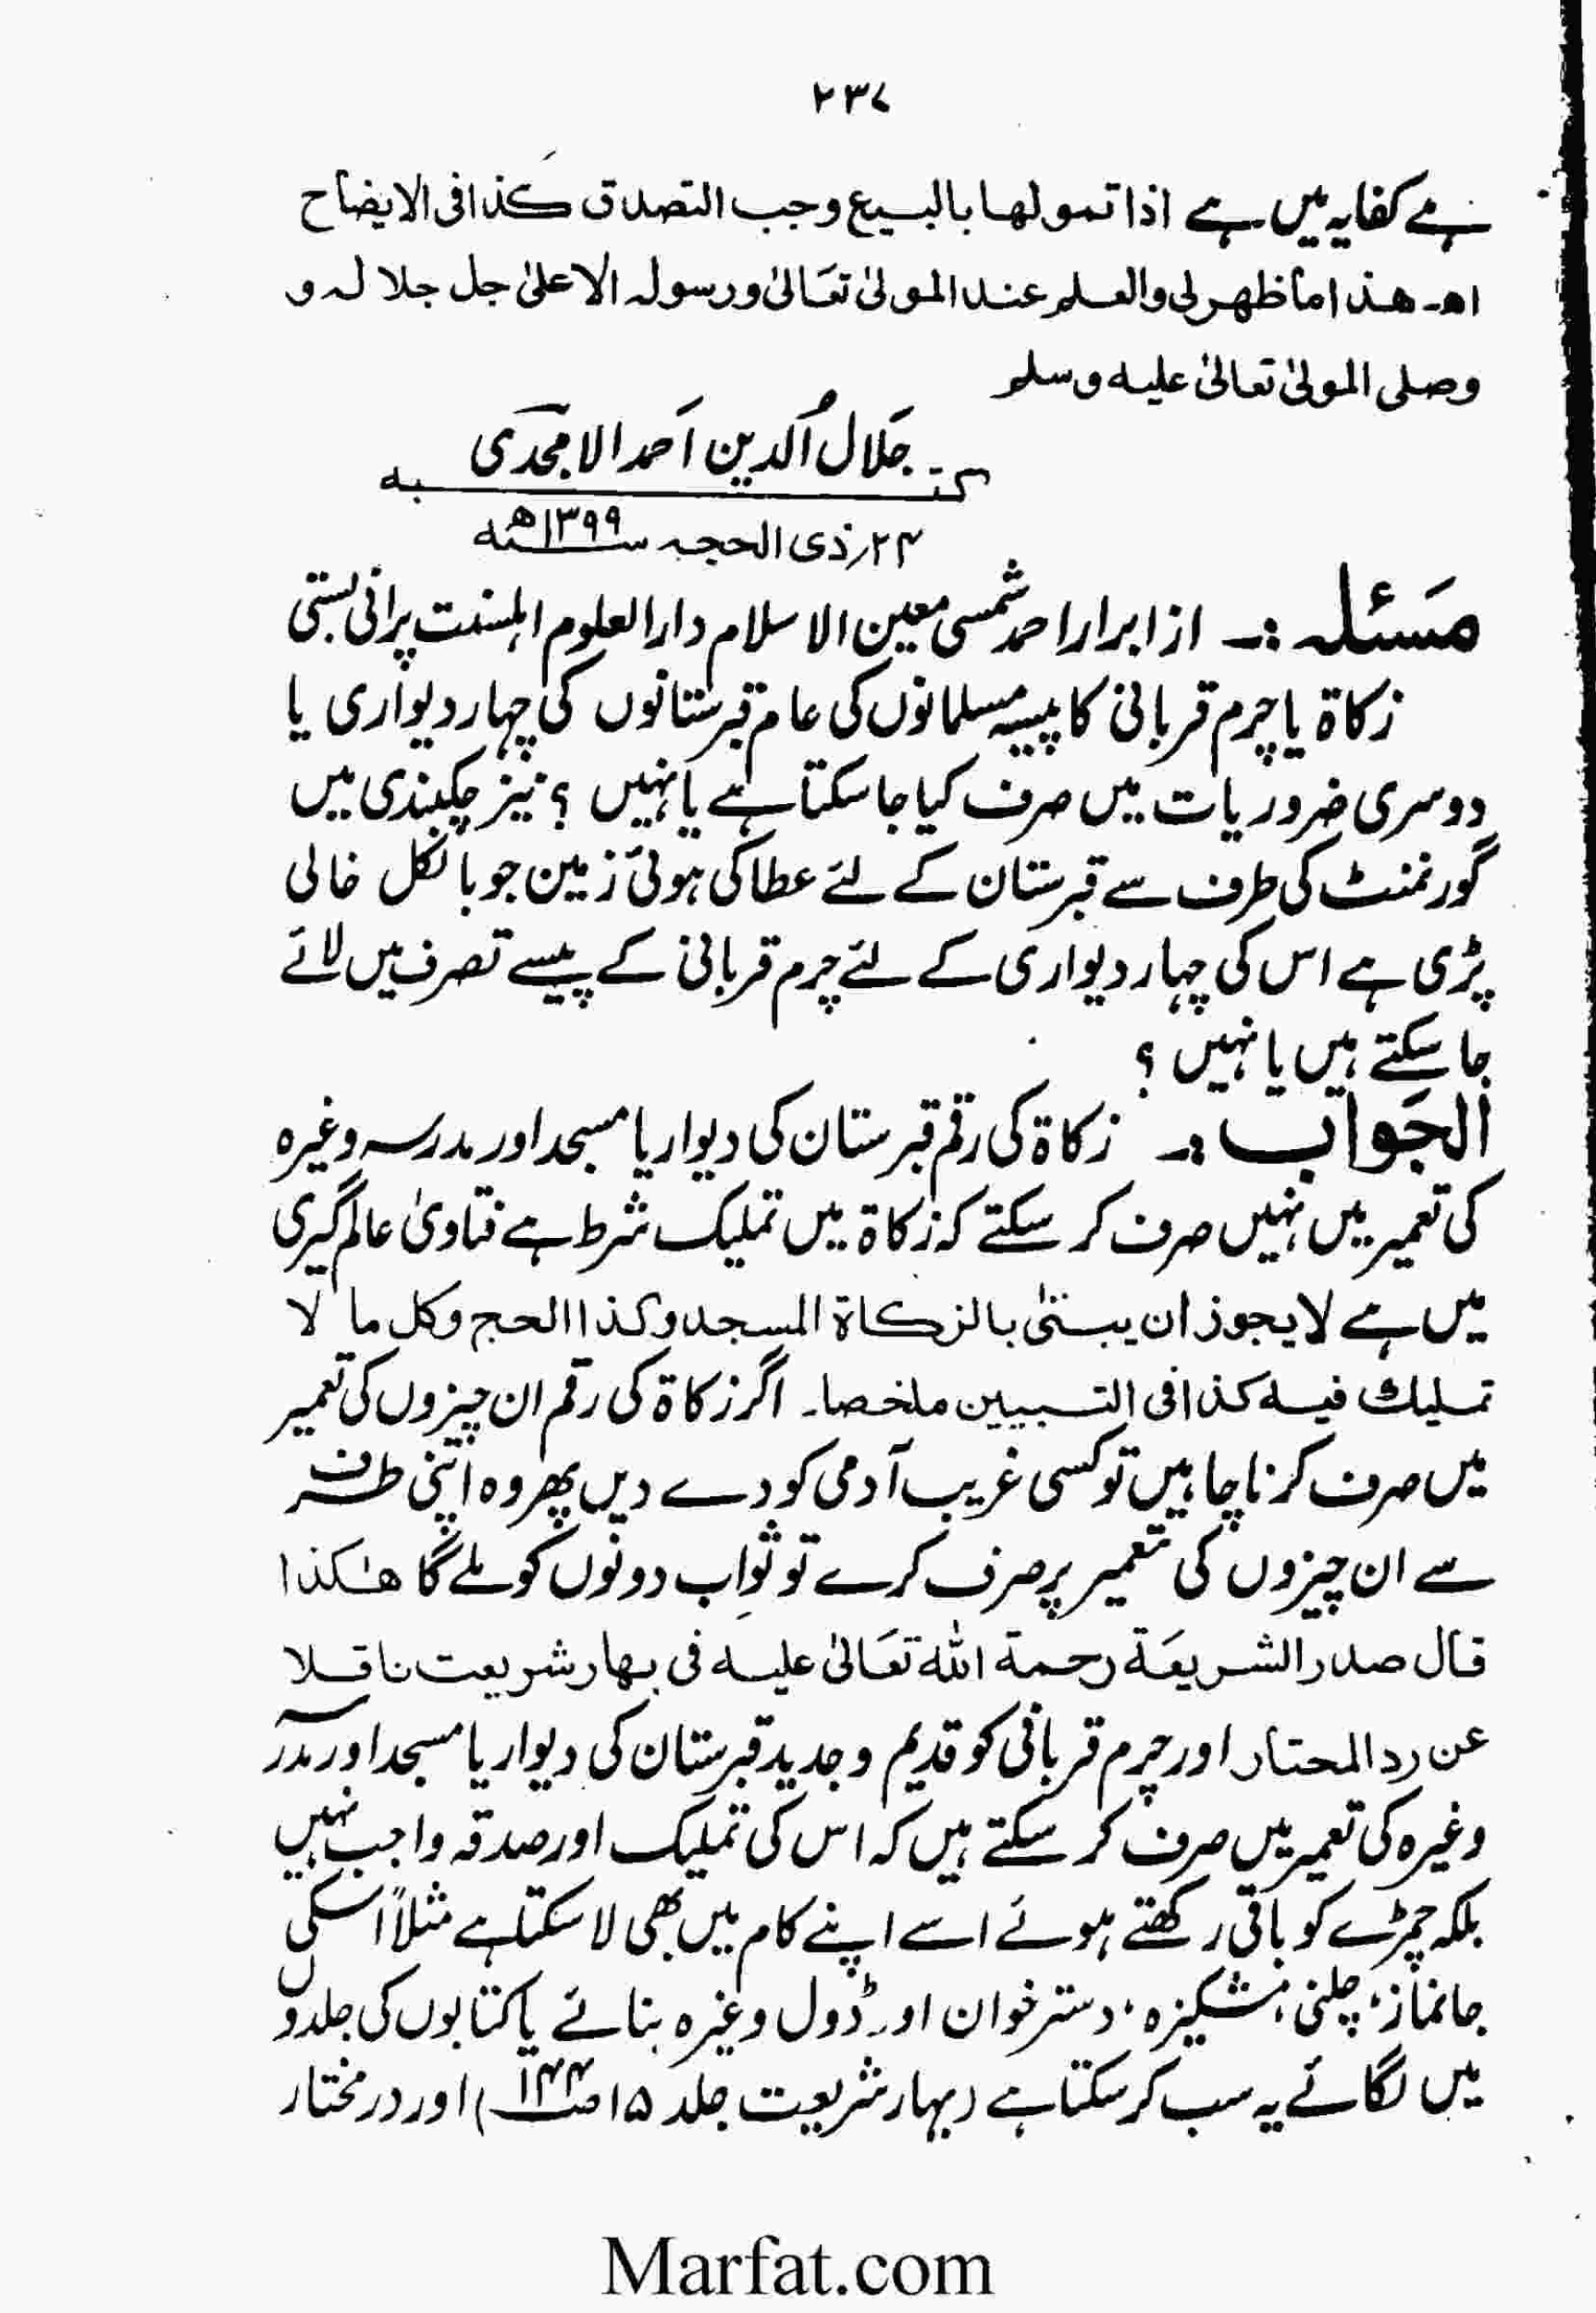 ۲۳۷
ہے کفایہ میں ہے اذا تمولها بالبيع وجب التصدق كذا فى الايضاح
اھ۔ هذا ما ظهر لى والعلم عند المولىٰ تعَالىٰ ورسوله الاعلىٰ جل جلاله و
وصلى المولىٰ تعالىٰ عليه وسلم
جَلال اُلدین اَحمد الامجدی
کتبہ
۲۴؍ ذی الحجہ سنہ ۱۳۹۹ھ
مَسئلہ :۔ از ابرار احمد شمسی معین الاسلام دارالعلوم اہلسنت پرانی بستی
زکاة یا چرم قربانی کا پیسہ مسلمانوں کی عام قبرستانوں کی چہار دیواری یا
دوسری ضروریات میں صرف کیا جا سکتا ہے یا نہیں ؟ نیز چکبندی میں
گورنمنٹ کی طرف سے قبرستان کے لئے عطا کی ہوئی زمین جو بالکل خالی
پڑی ہے اس کی چہار دیواری کے لئے چرم قربانی کے پیسے تصرف میں لائے
جا سکتے ہیں یا نہیں ؟
الجَواب :۔ زکاة کی رقم قبرستان کی دیوار یا مسجد اور مدرسہ وغیرہ
کی تعمیر میں نہیں صرف کر سکتے کہ زکاة میں تملیک شرط ہے فتاویٰ عالم گیری
میں ہے لا يجوز ان يبنىٰ بالزكاة المسجد وكذا الحج وكل ما لا
تمليك فيه كذا فى التبيين ملخصا۔ اگر زکاة کی رقم ان چیزوں کی تعمیر
میں صرف کرنا چاہیں تو کسی غریب آدمی کو دے دیں پھر وہ اپنی طرف
سے ان چیزوں کی تعمیر پر صرف کرے تو ثواب دونوں کو ملے گا هٰكذا
قال صدر الشريعَة رحمة الله تعَالىٰ عليه فى بهار شريعت ناقلا
عن رد المحتار اور چرم قربانی کو قدیم و جدید قبرستان کی دیوار یا مسجد اور مدرسہ
وغیرہ کی تعمیر میں صرف کر سکتے ہیں کہ اس کی تملیک اور صدقہ واجب نہیں
بلکہ چمڑے کو باقی رکھتے ہوئے اسے اپنے کام میں بھی لا سکتا ہے مثلاً اسکی
جانماز، چلنی، مشکیزہ، دسترخوان اور ڈول وغیرہ بنائے یا کتابوں کی جلدوں
میں لگائے یہ سب کر سکتا ہے (بہار شریعت جلد ۱۵ صـ ۱۴۴) اور درمختار
Marfat.com